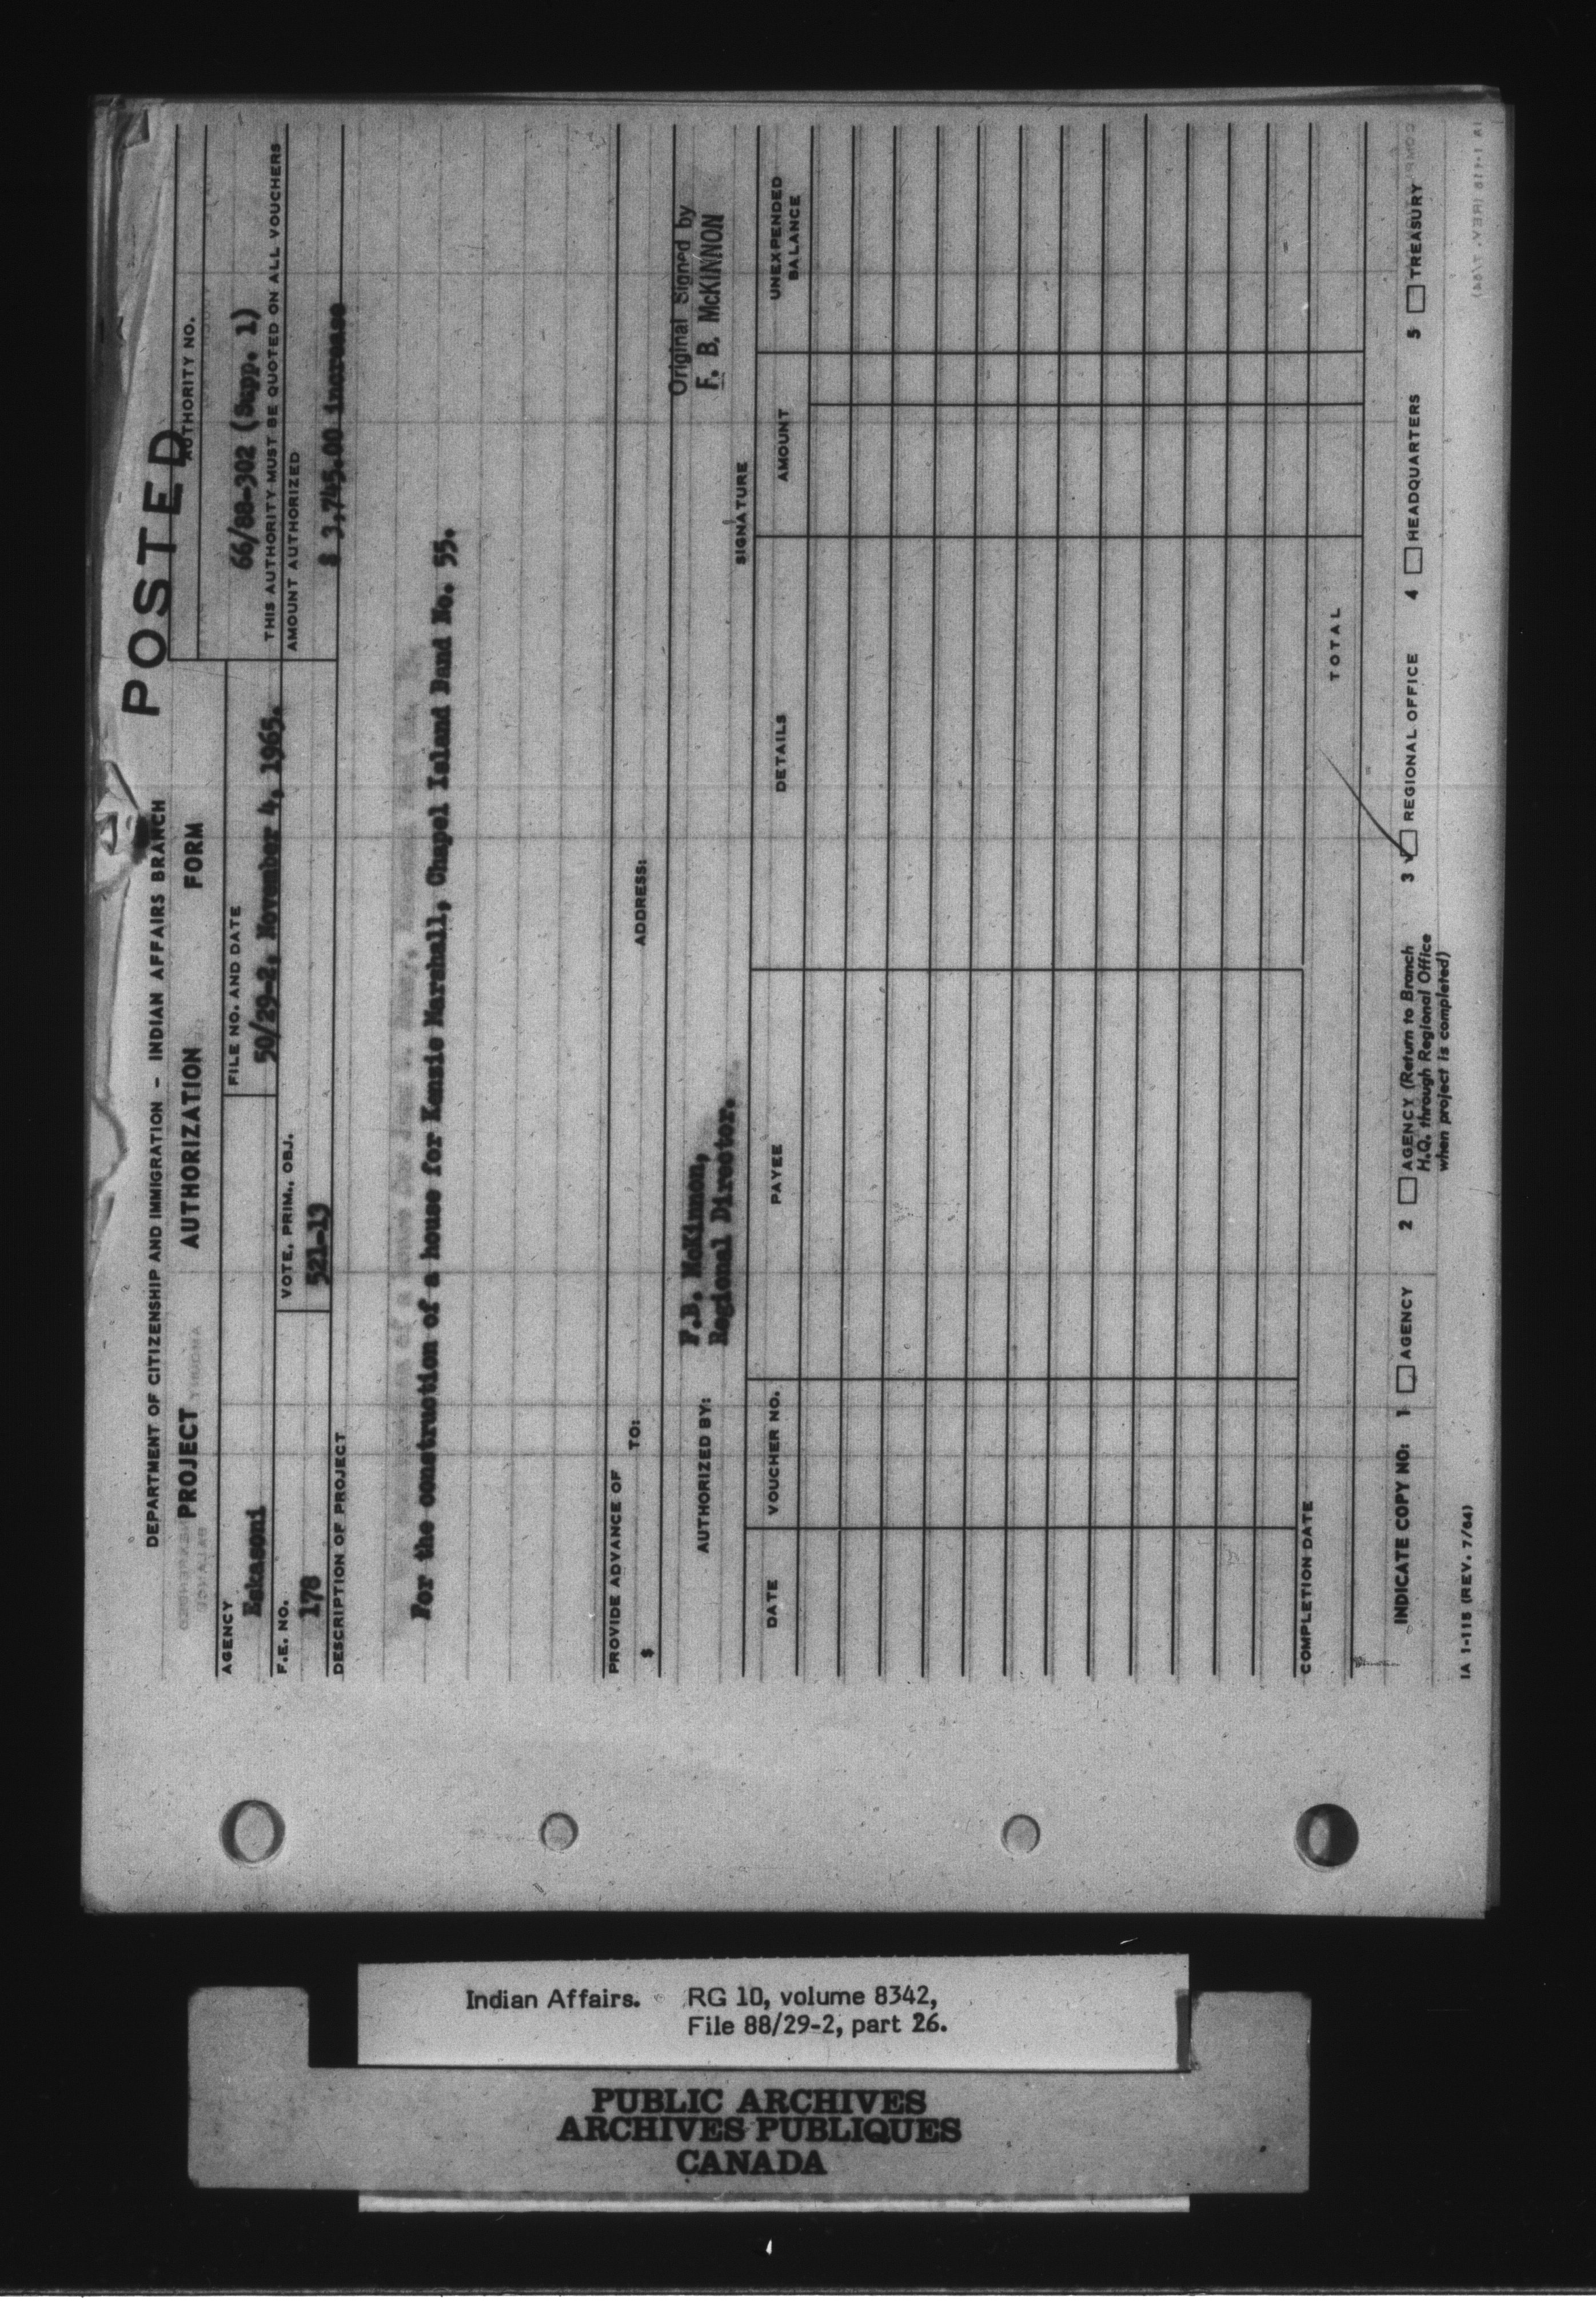 POSTED
DEPARTMENT OF CITIZENSHIP AND IMMIGRATION - INDIAN AFFAIRS BRANCH
PROJECT AUTHORIZATION FORM
AUTHORITY NO.
66/88-302 (Supp. 1)
THIS AUTHORITY MUST BE QUOTED ON ALL VOUCHERS
AGENCY
Eskasoni
FILE NO. AND DATE
50/29-2, November 4, 1965.
F.E. NO.
178
VOTE, PRIM., OBJ.
521-13
AMOUNT AUTHORIZED
$ 3,745.00 increase
DESCRIPTION OF PROJECT
For the construction of a house for Kensie Marshall, Chapel Island Band No. 55.
PROVIDE ADVANCE OF
$ TO: ADDRESS:
Original Signed by
F. B. McKINNON
F.B. McKinnon,
AUTHORIZED BY: Regional Director.
SIGNATURE
DATE VOUCHER NO. PAYEE DETAILS AMOUNT UNEXPENDED BALANCE
COMPLETION DATE
TOTAL
INDICATE COPY NO: 1 AGENCY 2 AGENCY (Return to Branch 3 REGIONAL OFFICE 4 HEADQUARTERS 5 TREASURY
H.Q. through Regional Office
when project is completed)
IA 1-115 (REV. 7/64)
Indian Affairs. RG 10, volume 8342,
File 88/29-2, part 26.
PUBLIC ARCHIVES
ARCHIVES PUBLIQUES
CANADA